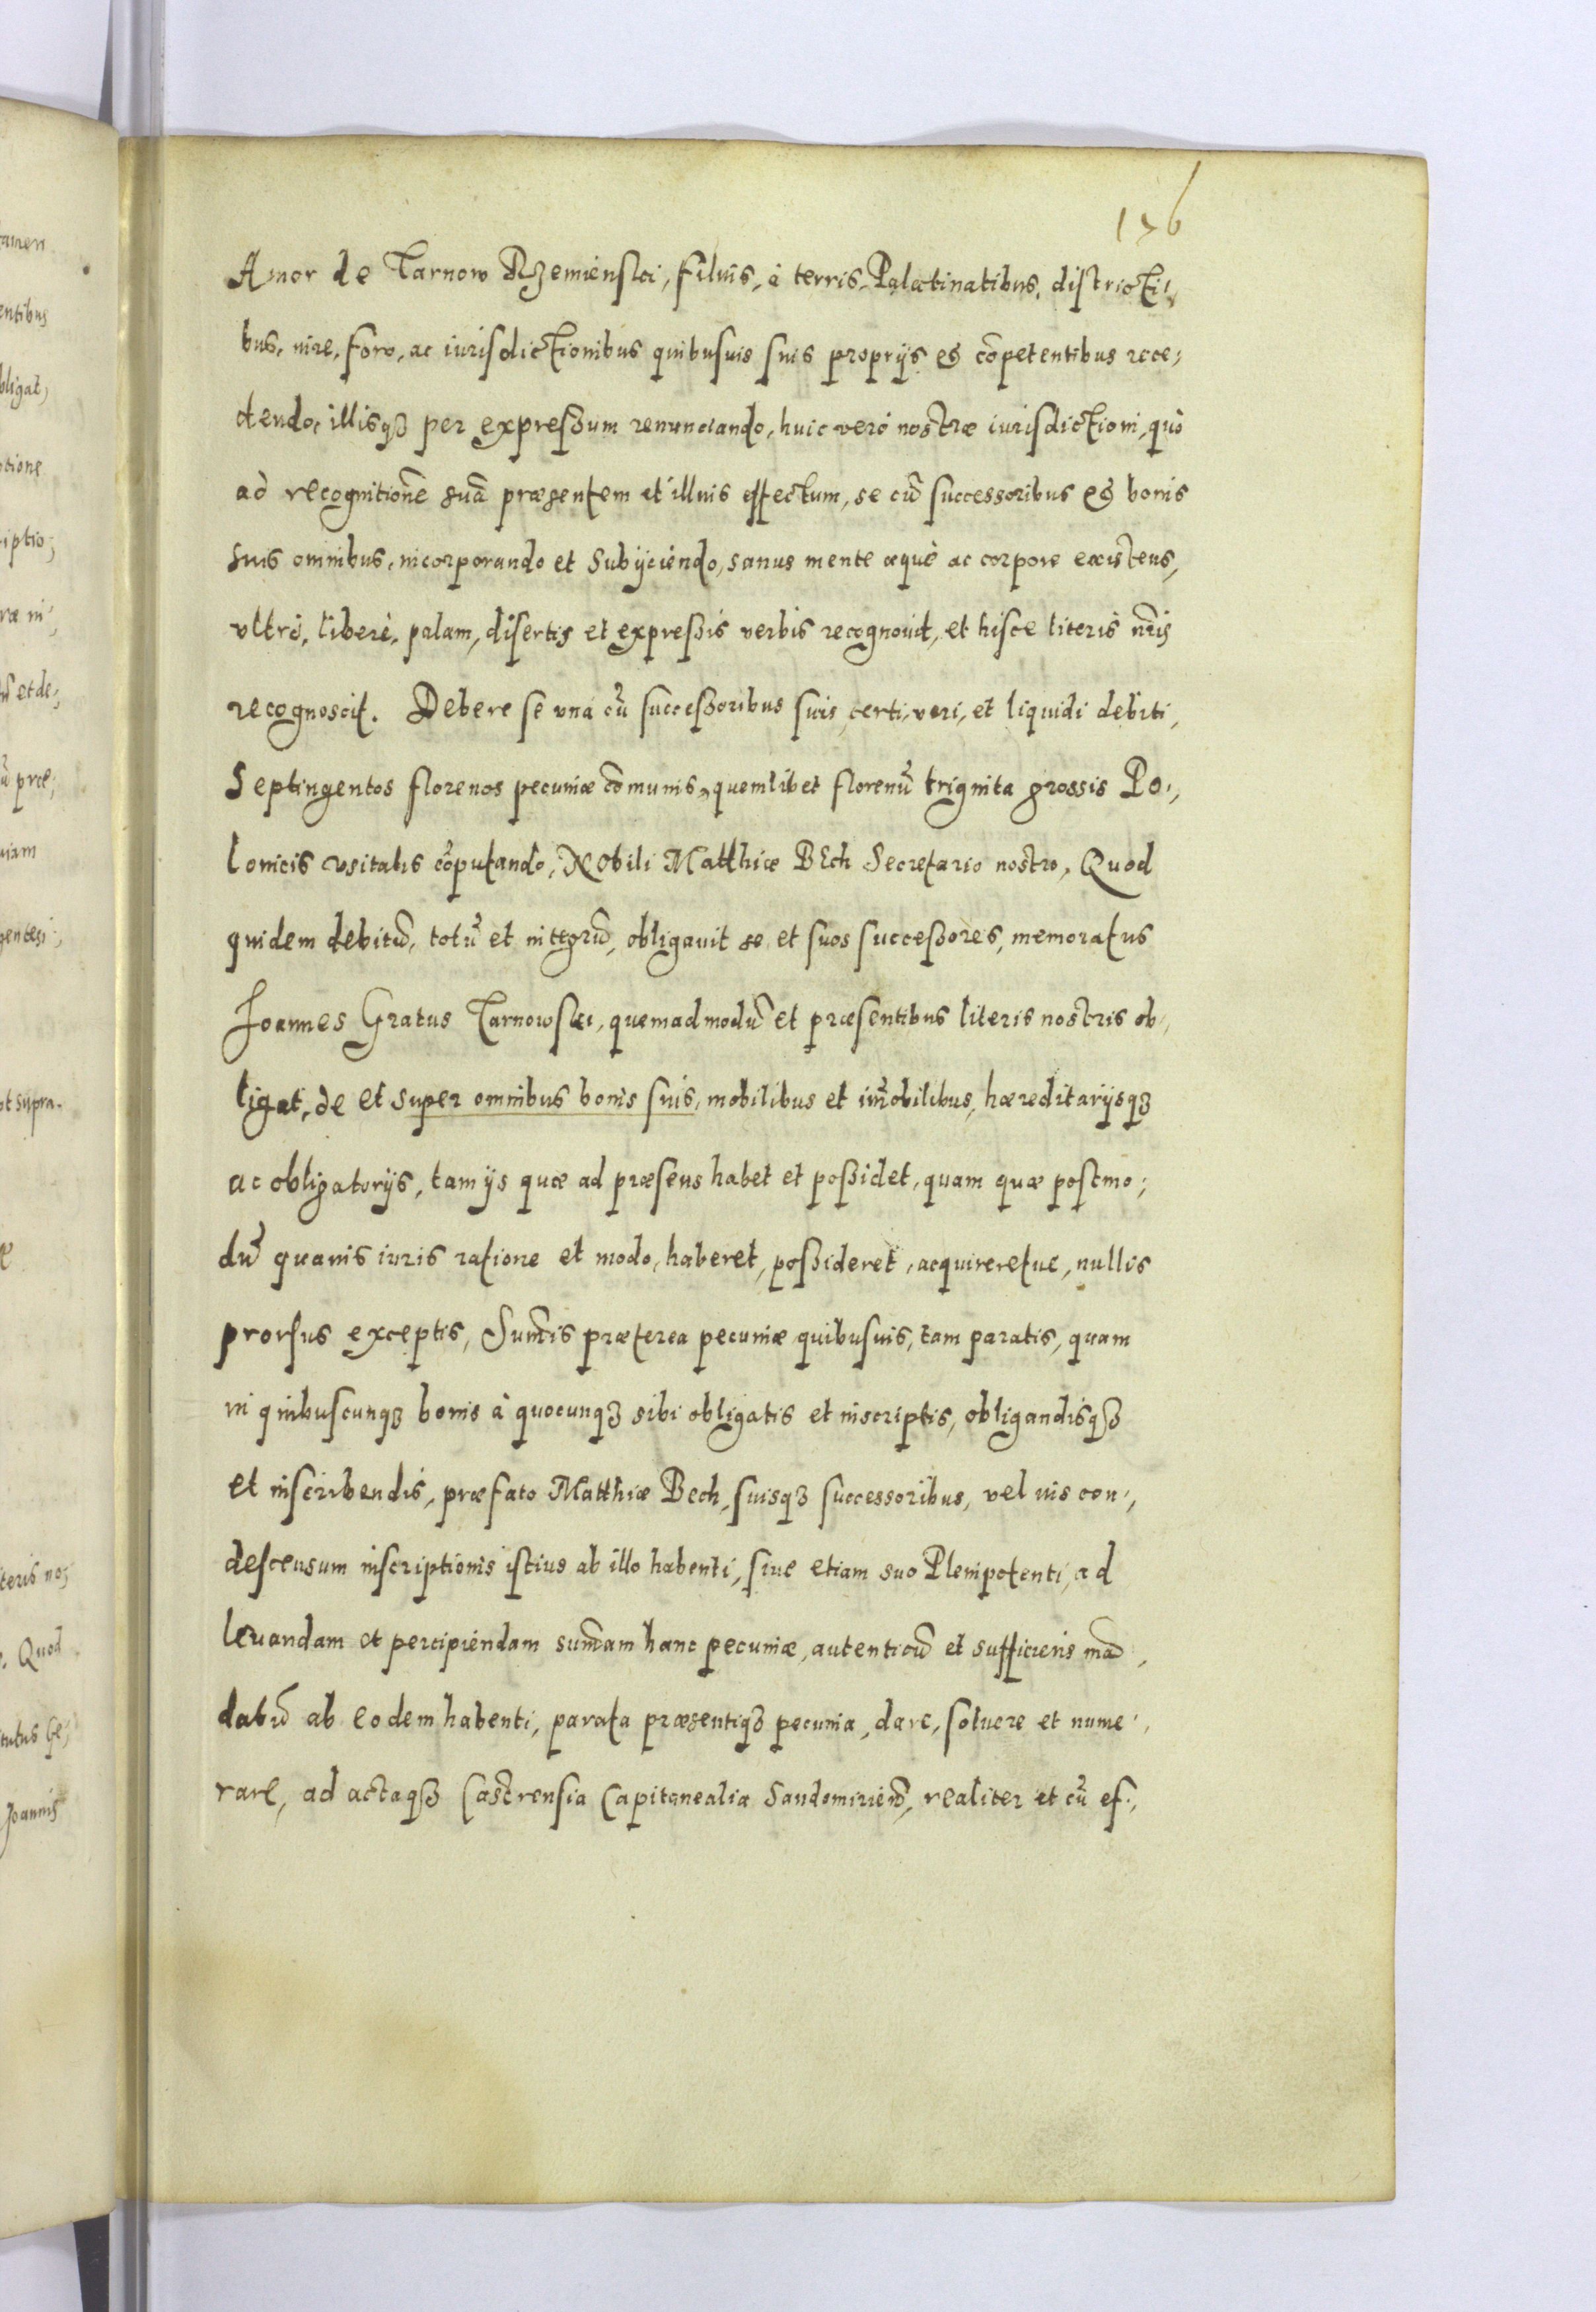 176
Amor de Tarnow Rzemienski, filius, à terris, Palatinatibus, districti-
bus, iure, foro, ac iurisdictionibus quibusuis suis proprijs & cõpetentibus rece-
dendo, illisqꝫ per expressum renunciando, huic verò nostræ iurisdictioni, quò
ad recognitionẽ suã præsentem et illius effectum, se cũ successoribus & bonis
suis omnibus, incorporando et subijciendo, sanus mente æquè ac corpore existens,
vltrò, liberè, palam, disertis et expressis verbis recognouit, et hisce literis nr̃is
recognoscit. Debere se vnà cũ successoribus suis, certi, veri, et liquidi debiti,
Septingentos florenos pecuniæ cõmunis, quemlibet florenũ triginta grossis Po-
lonicis vsitatis cõputando, Nobili Matthiæ Bech Secretario nostro, Quod
quidem debitũ, totũ et integrũ, obligauit se et suos successores, memoratus
Joannes Gratus Tarnowski, quemadmodũ et præsentibus literis nostris ob-
ligat, de et super omnibus bonis suis, mobilibus et im̃obilibus, hæreditarijsqꝫ
ac obligatorijs, tam ijs quæ ad præsens habet et possidet, quam quæ postmo-
dũ quauis iuris ratione et modo, haberet, possideret, acquireretue, nullis
prorsus exceptis, Sum̃is præterea pecuniæ quibusuis, tam paratis, quam
in quibuscunqꝫ bonis à quocunqꝫ sibi obligatis et inscriptis, obligandisqꝫ
et inscribendis, præfato Matthiæ Bech, suisqꝫ successoribus, vel ius con-
descensum inscriptionis istius ab illo habenti, siue etiam suo Plenipotenti, ad
leuandam et percipiendam sum̃am hanc pecuniæ, autenticũ et sufficiens mã-
datũ ab eodem habenti, parata præsentiqꝫ pecunia, dare, soluere et nume-
rare, ad actaqꝫ Castrensia Capitanealia Sandomirieñ, realiter et cũ ef-